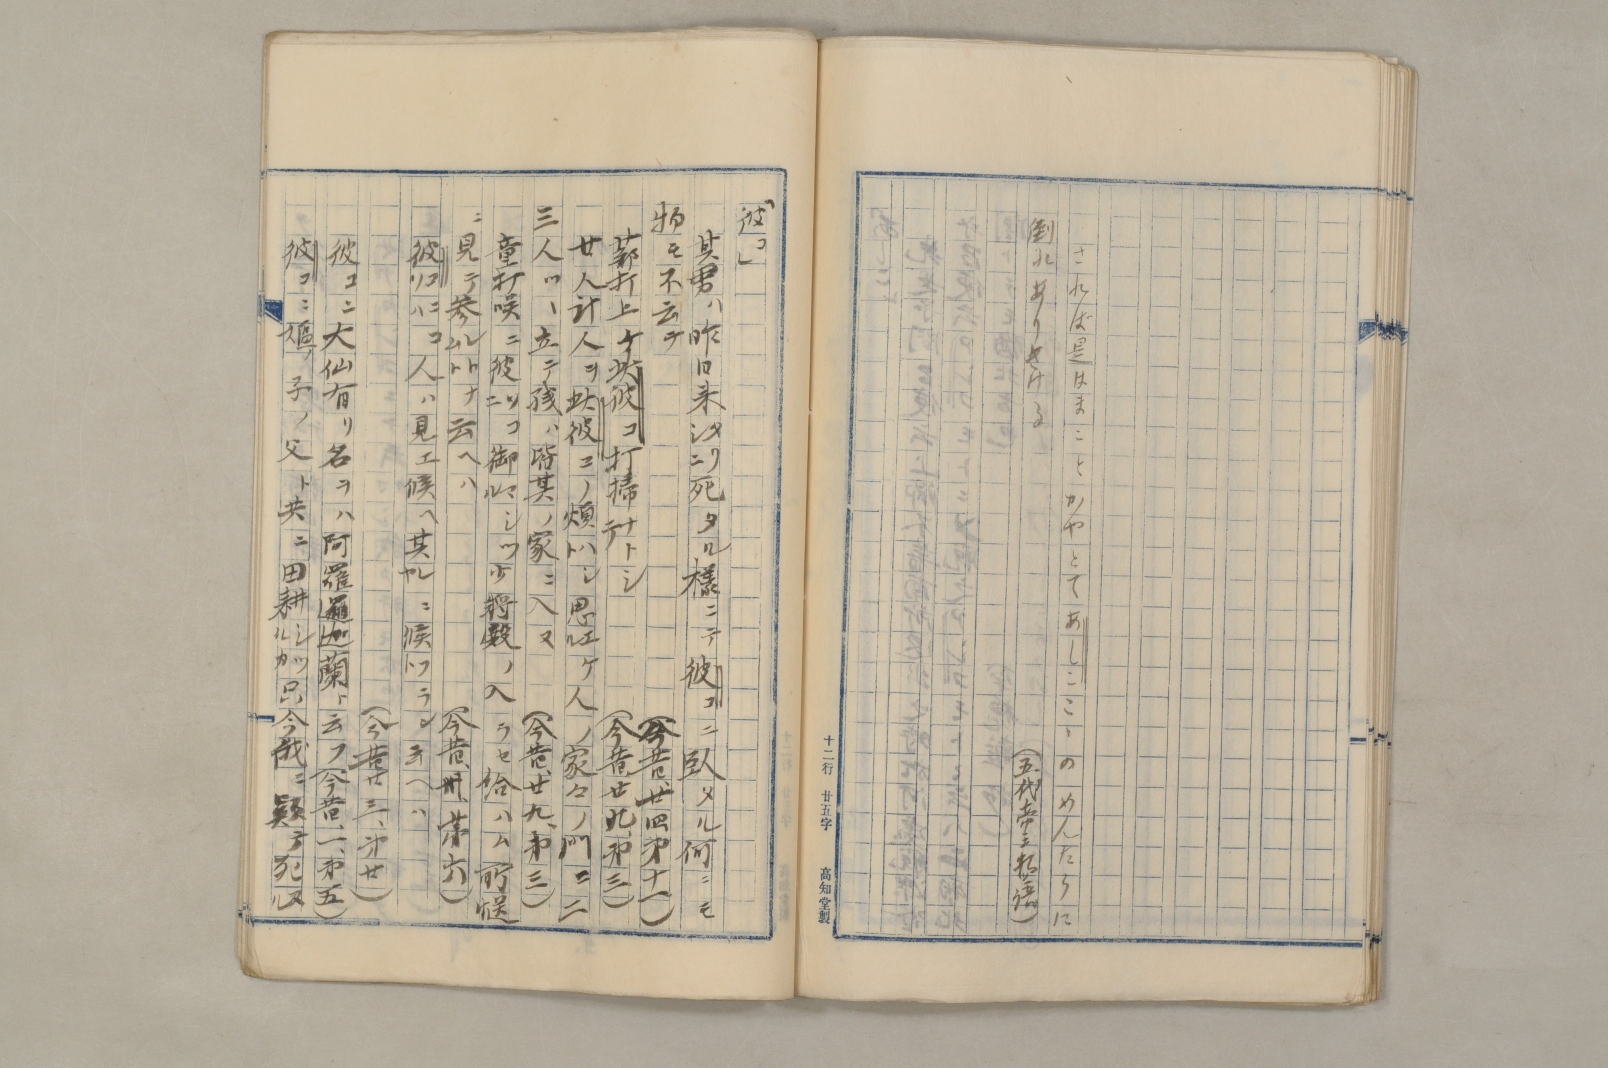 されば是はまことかやとてあしこゝのめんたうに
倒れありきける
(五代帝王物語)
十二行 廿五字 高知堂製
「彼コ」
其男ハ昨日来シタリニ死タル様ニテ彼コニ臥メル何ニモ
物モ不云テ
(今昔、廿四第十一)
蔀打上ケ此彼コ打掃ナトシテ
(今昔廿九、第三)
廿人計人ヲ此彼コノ煩ハシト思エル人ノ家々ノ門ニ二
三人ツヽ立テ残ハ皆其ノ家ニ入ヌ
(今昔、廿九、第三)
童打咲ニ彼コニソ御マシツル少将殿ノ入ラセ給ハム所候
ニ見テ参ルムトナト云ヘハ
(今昔、卅、第六)
彼コニソハ人ハ見エ候ヘ其レヤニ候フラントヘハ
(今昔廿三、第廿)
彼コニ大仙有リ名ヲハ阿羅邏迦蘭ト云フ(今昔、一、第五)
彼コニ嫗ノ子ノ父ト共ニ田耕シツルカ只今俄ニ死ヌル